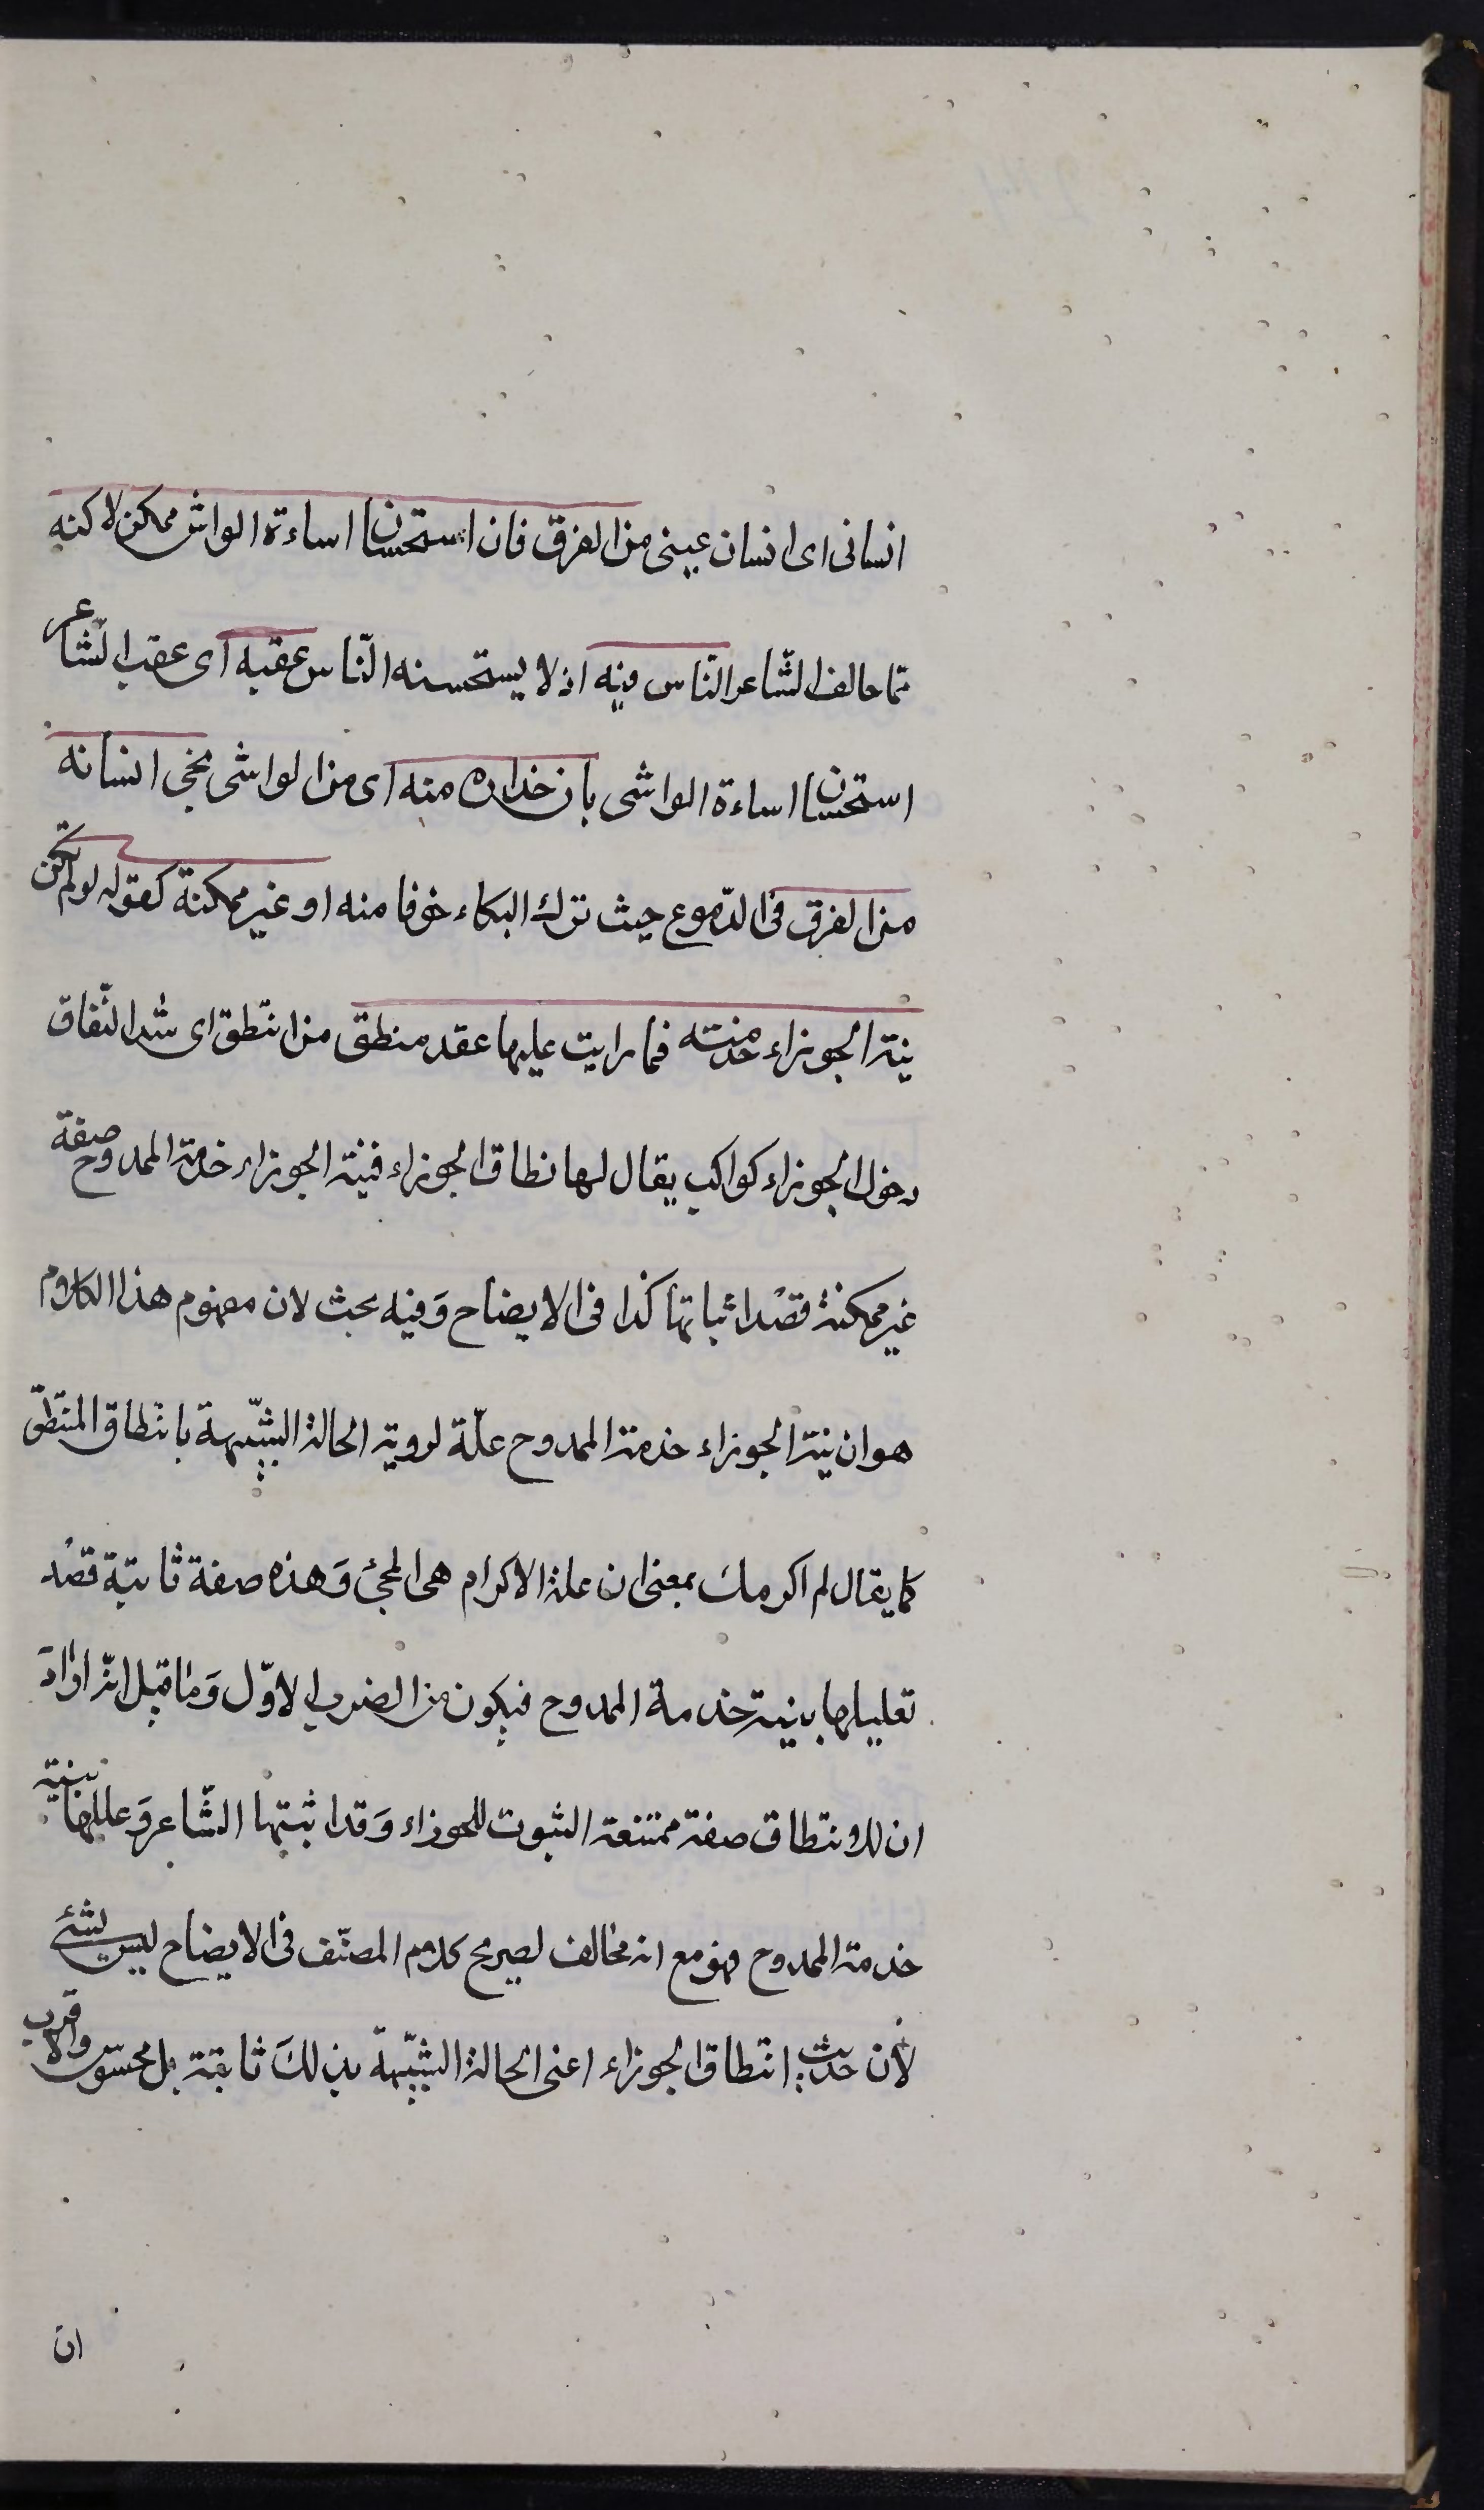 انسانى اى انسان عينى من الغرق فان استحسان اساءة الواش ممكن لاكنه
لما خالف الشّاعر النّاس فيه اذ لا يستحسنه النّاس عقبه اى عقب الشّاعر
استحسان اساءة الواشى بان حذاره منه اى من الواشى نجى انسانه
من الغرق فى الدّموع حيث ترك البكاء خوفا منه او غير ممكنة كقوله لو لم تكن
نية الجوزاء خدمته فما رايت عليها عقد منتطق من انتطق اى شد النّفاق
دخول الجوزاء كواكب يقال لها نطاق الجوزاء فنية الجوزاء خدمة الممدوح صفة
غير ممكنة قصْد اثباتها كذا فى الايضاح وَفيه بحث لان مفهوم هذا الكلام
هو ان نية الجوزاء خدمة الممدوح علّة لروية الحالة الشبّيهة بانتطاق المنتطّق
كما يقال لم اكرمك بمعنى ان علة الاكرام هى المجئ وَهذه صفة ثابتة قصْد
تعليلها بنية خدمة الممدوح فيكون من الضرب الاوّل وَما قيل انّه ارادَ
ان الانتطاق صفة ممتنعة الثبوت للجوزاء وَقد اثبتها الشّاعر وَعللها بنية
خدمة الممدوح فهو مع انه مخالف لصريح كلام المصنّف فى الايضاح ليس بشئ
لأن حديث انتطاق الجوزاء اعنى الحالة الشبّيهة بذلكَ ثابتة بل محسوس والاقرب
ان